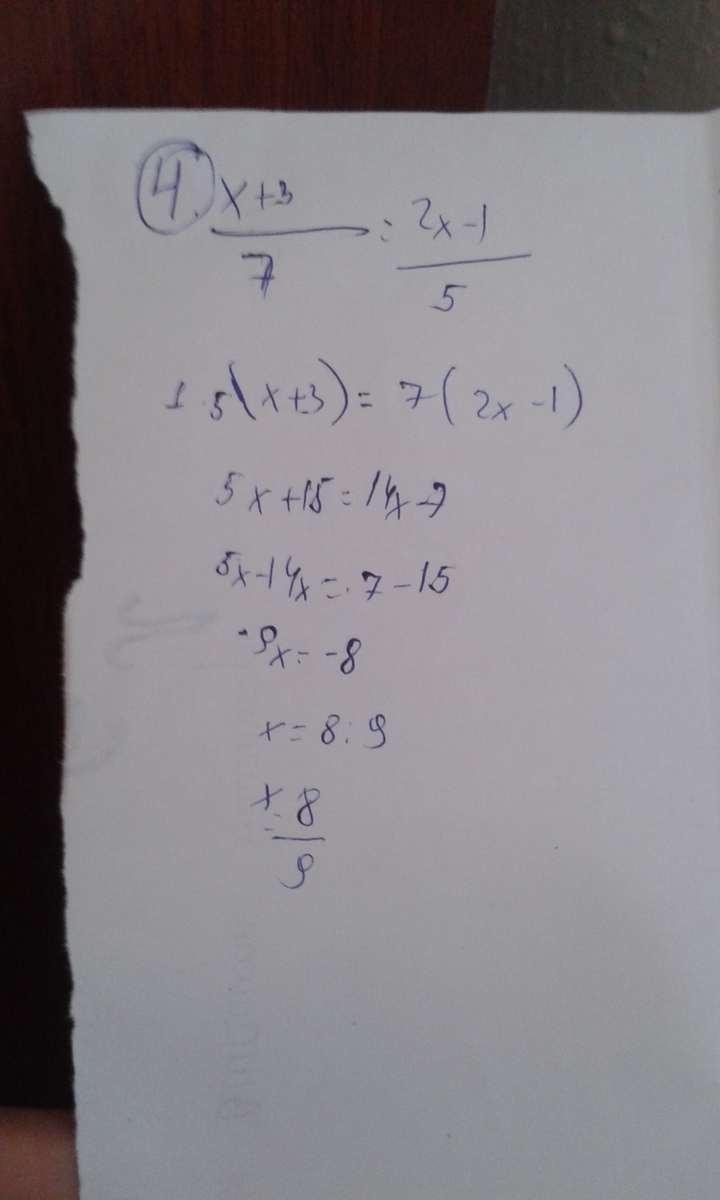 4. x+3/7 = 2x-1/5
1. 5(x+3) = 7(2x-1)
5x+15=14x-7
5x-14x=7-15
-9x=-8
x=8:9
x=8/9